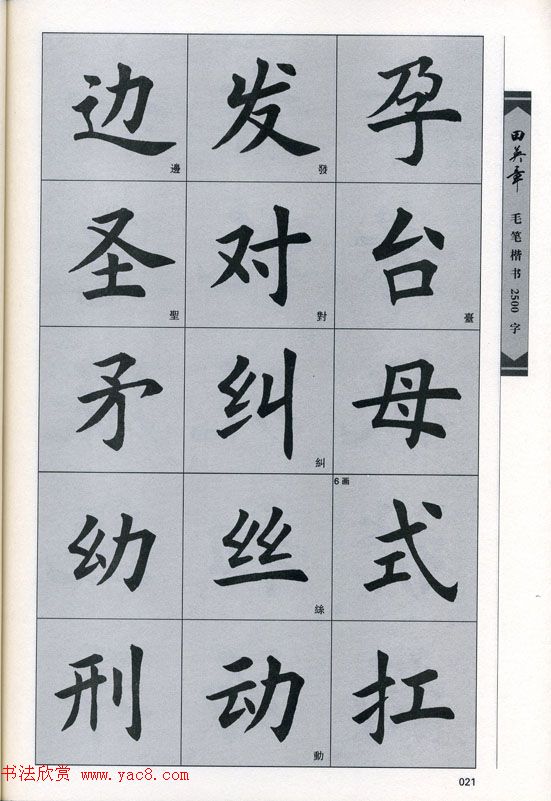 边 邊 发 發 孕
圣 聖 对 對 台 臺
矛 纠 糾 母
幼 丝 絲 6画 式
刑 动 動 扛
田英章 毛笔楷书2500字
021
书法欣赏 www.yac8.com